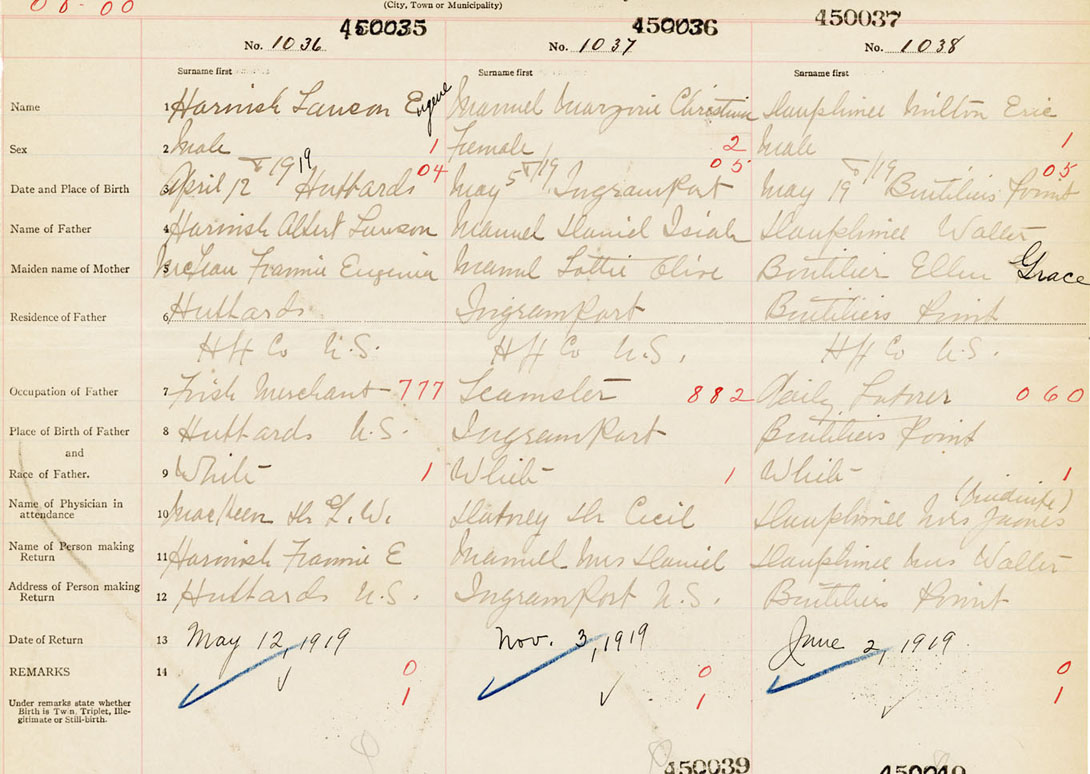 (City, Town or Municipality)
00-00
450035 450036 450037
No. 1036 No. 1037 No. 1038
Surname first Surname first Surname first
Name 1 Harnish Lawson Eugene Manuel Marjorie Christina Dauphinee Milton Eric
Sex 2 Male 1 Female 2 Male 1
04 05 05
Date and Place of Birth 3 April 12 1919 Hubbards May 5 /19 Ingramport May 19 /19 Boutiliers Point
Name of Father 4 Harnish Albert Lawson Manuel Daniel Isiah Dauphinee Walter
Maiden name of Mother 5 McLean Fannie Eugenia Manul Lottie Olive Boutilier Ellen Grace
Residence of Father 6 Hubbards Ingramport Boutiliers Point
Hfx Co N.S. Hfx Co N.S. Hfx Co N.S.
Occupation of Father 7 Fish Merchant 777 Teamster 882 Daily Laborer 060
Place of Birth of Father 8 Hubbards N.S. Ingramport Boutiliers Point
and
Race of Father. 9 White 1 White 1 White 1
(Midwife)
Name of Physician in attendance 10 MacKeen Dr L.W. Dabney Dr Cecil Dauphinee Mrs James
Name of Person making Return 11 Harnish Fannie E Manuel Mrs Daniel Dauphinee Mrs Walter
Address of Person making Return 12 Hubbards N.S. Ingramport N.S. Boutiliers Point
Date of Return 13 May 12, 1919 Nov. 3, 1919 June 2, 1919
REMARKS 14 0 0 0
Under remarks state whether Birth is Twin, Triplet, Ille-
gitimate or Still-birth. 1 1 1
450039